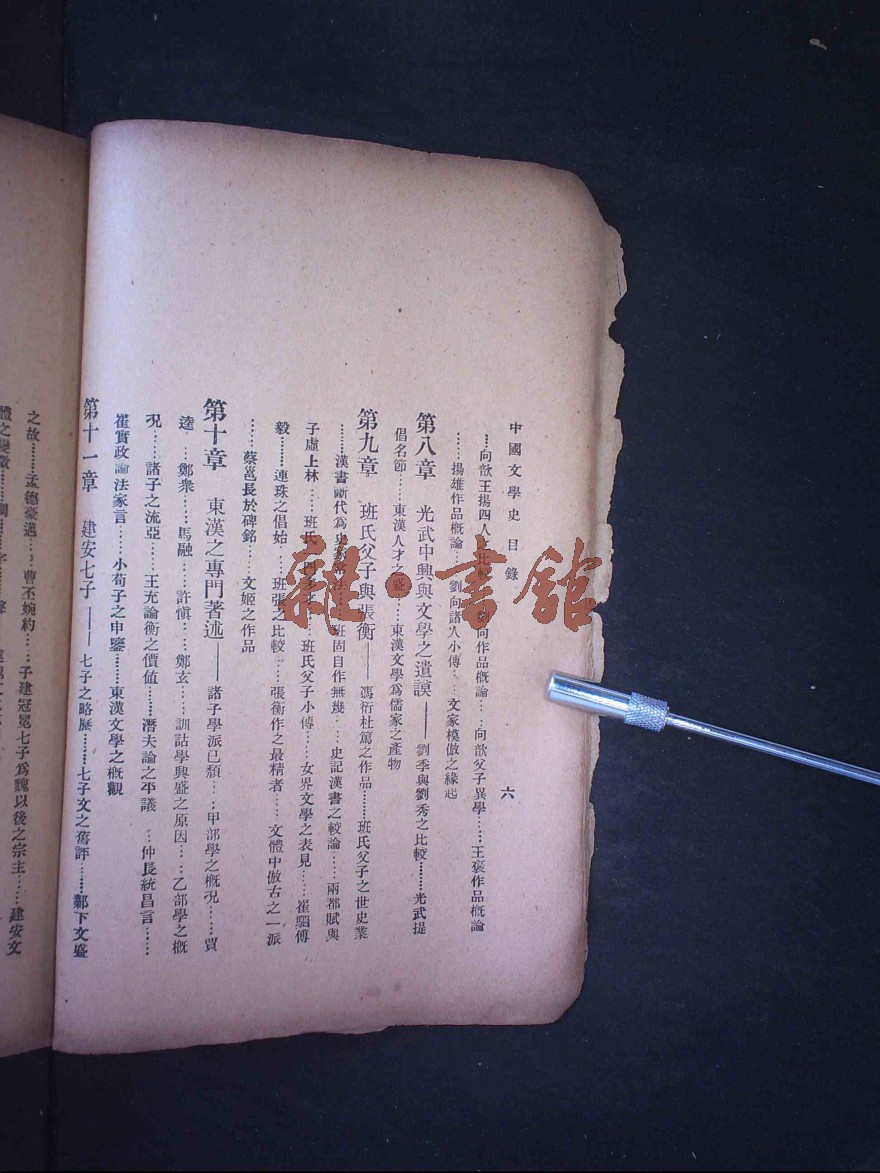 中國文學史目錄
六
……向歆王揚四人之比較……劉向作品概論……向歆父子異學……王褒作品概論
……揚雄作品概論……劉向諸人小傳……文家模倣之緣起
第八章 光武中興與文學之遺謨——劉季與劉秀之比較……光武提
倡名節……東漢人才之盛……東漢文學爲儒家之產物
第九章 班氏父子與張衡——馮衍杜篤之作品……班氏父子之世史業
……漢書斷代爲史家常法……班固自作無幾……史記漢書之較論……兩都賦與
子虛上林……班氏一門多才……班氏父子小傳……女界文學之表見……崔駰傅
毅……連珠之倡始……班張之比較……張衡作之最精者……文體中倣古之一派
……蔡邕長於碑銘……文姬之作品
第十章 東漢之專門著述——諸子學派已頹……甲部學之概況……賈
逵……鄭衆……馬融……許愼……鄭玄……訓詁學興盛之原因……乙部學之概
況……諸子之流亞……王充論衡之價値……潛夫論之平議……仲長統昌言……
崔實政論法家言……小荀子之申鑒……東漢文學之概觀
第十一章 建安七子——七子之略歷……七子文之舊評……鄴下文盛
之故……孟德豪邁……曹丕婉約……子建冠冕七子爲魏以後之宗主……建安文
體之變徵
雜·書館